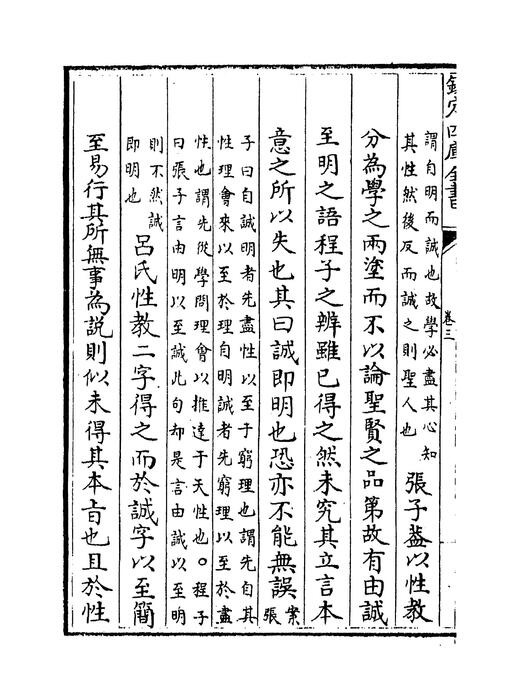 欽定四庫全書
卷三
謂自明而誠也故學必盡其心知
其性然後反而誠之則聖人也
張子葢以性教
分為學之兩塗而不以論聖賢之品第故有由誠
至明之語程子之辨雖已得之然未究其立言本
意之所以失也其曰誠即明也恐亦不能無誤
案
張
子曰自誠明者先盡性以至于窮理也謂先自其
性理會來以至於理自明誠者先窮理以至於盡
性也謂先從學問理會以推達于天性也○程子
曰張子言由明以至誠此句却是言由誠以至明
則不然誠
即明也
呂氏性教二字得之而於誠字以至簡
至易行其所無事為説則似未得其本㫖也且於性